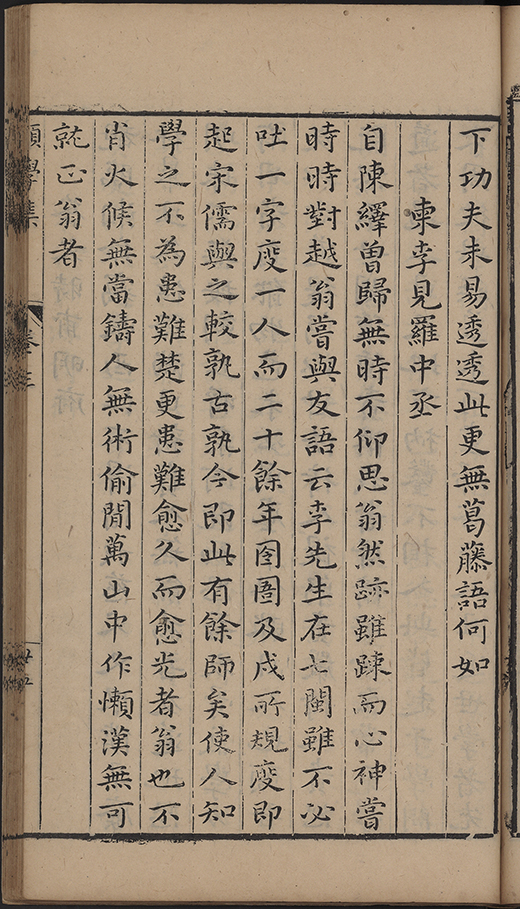 下功夫未易透透此更無葛藤語何如
柬李見羅中丞
自陳繹曾歸無時不仰思翁然跡雖踈而心神嘗
時時對越翁嘗與友語云李先生在七閩雖不必
吐一字度一人而二十餘年囹圄及戍所規度即
起宋儒與之較孰古孰今即此有餘師矣使人知
學之不為患難楚更患難愈久而愈光者翁也不
肖火候無當鑄人無術偷閒萬山中作懶漢無可
就正翁者
學集